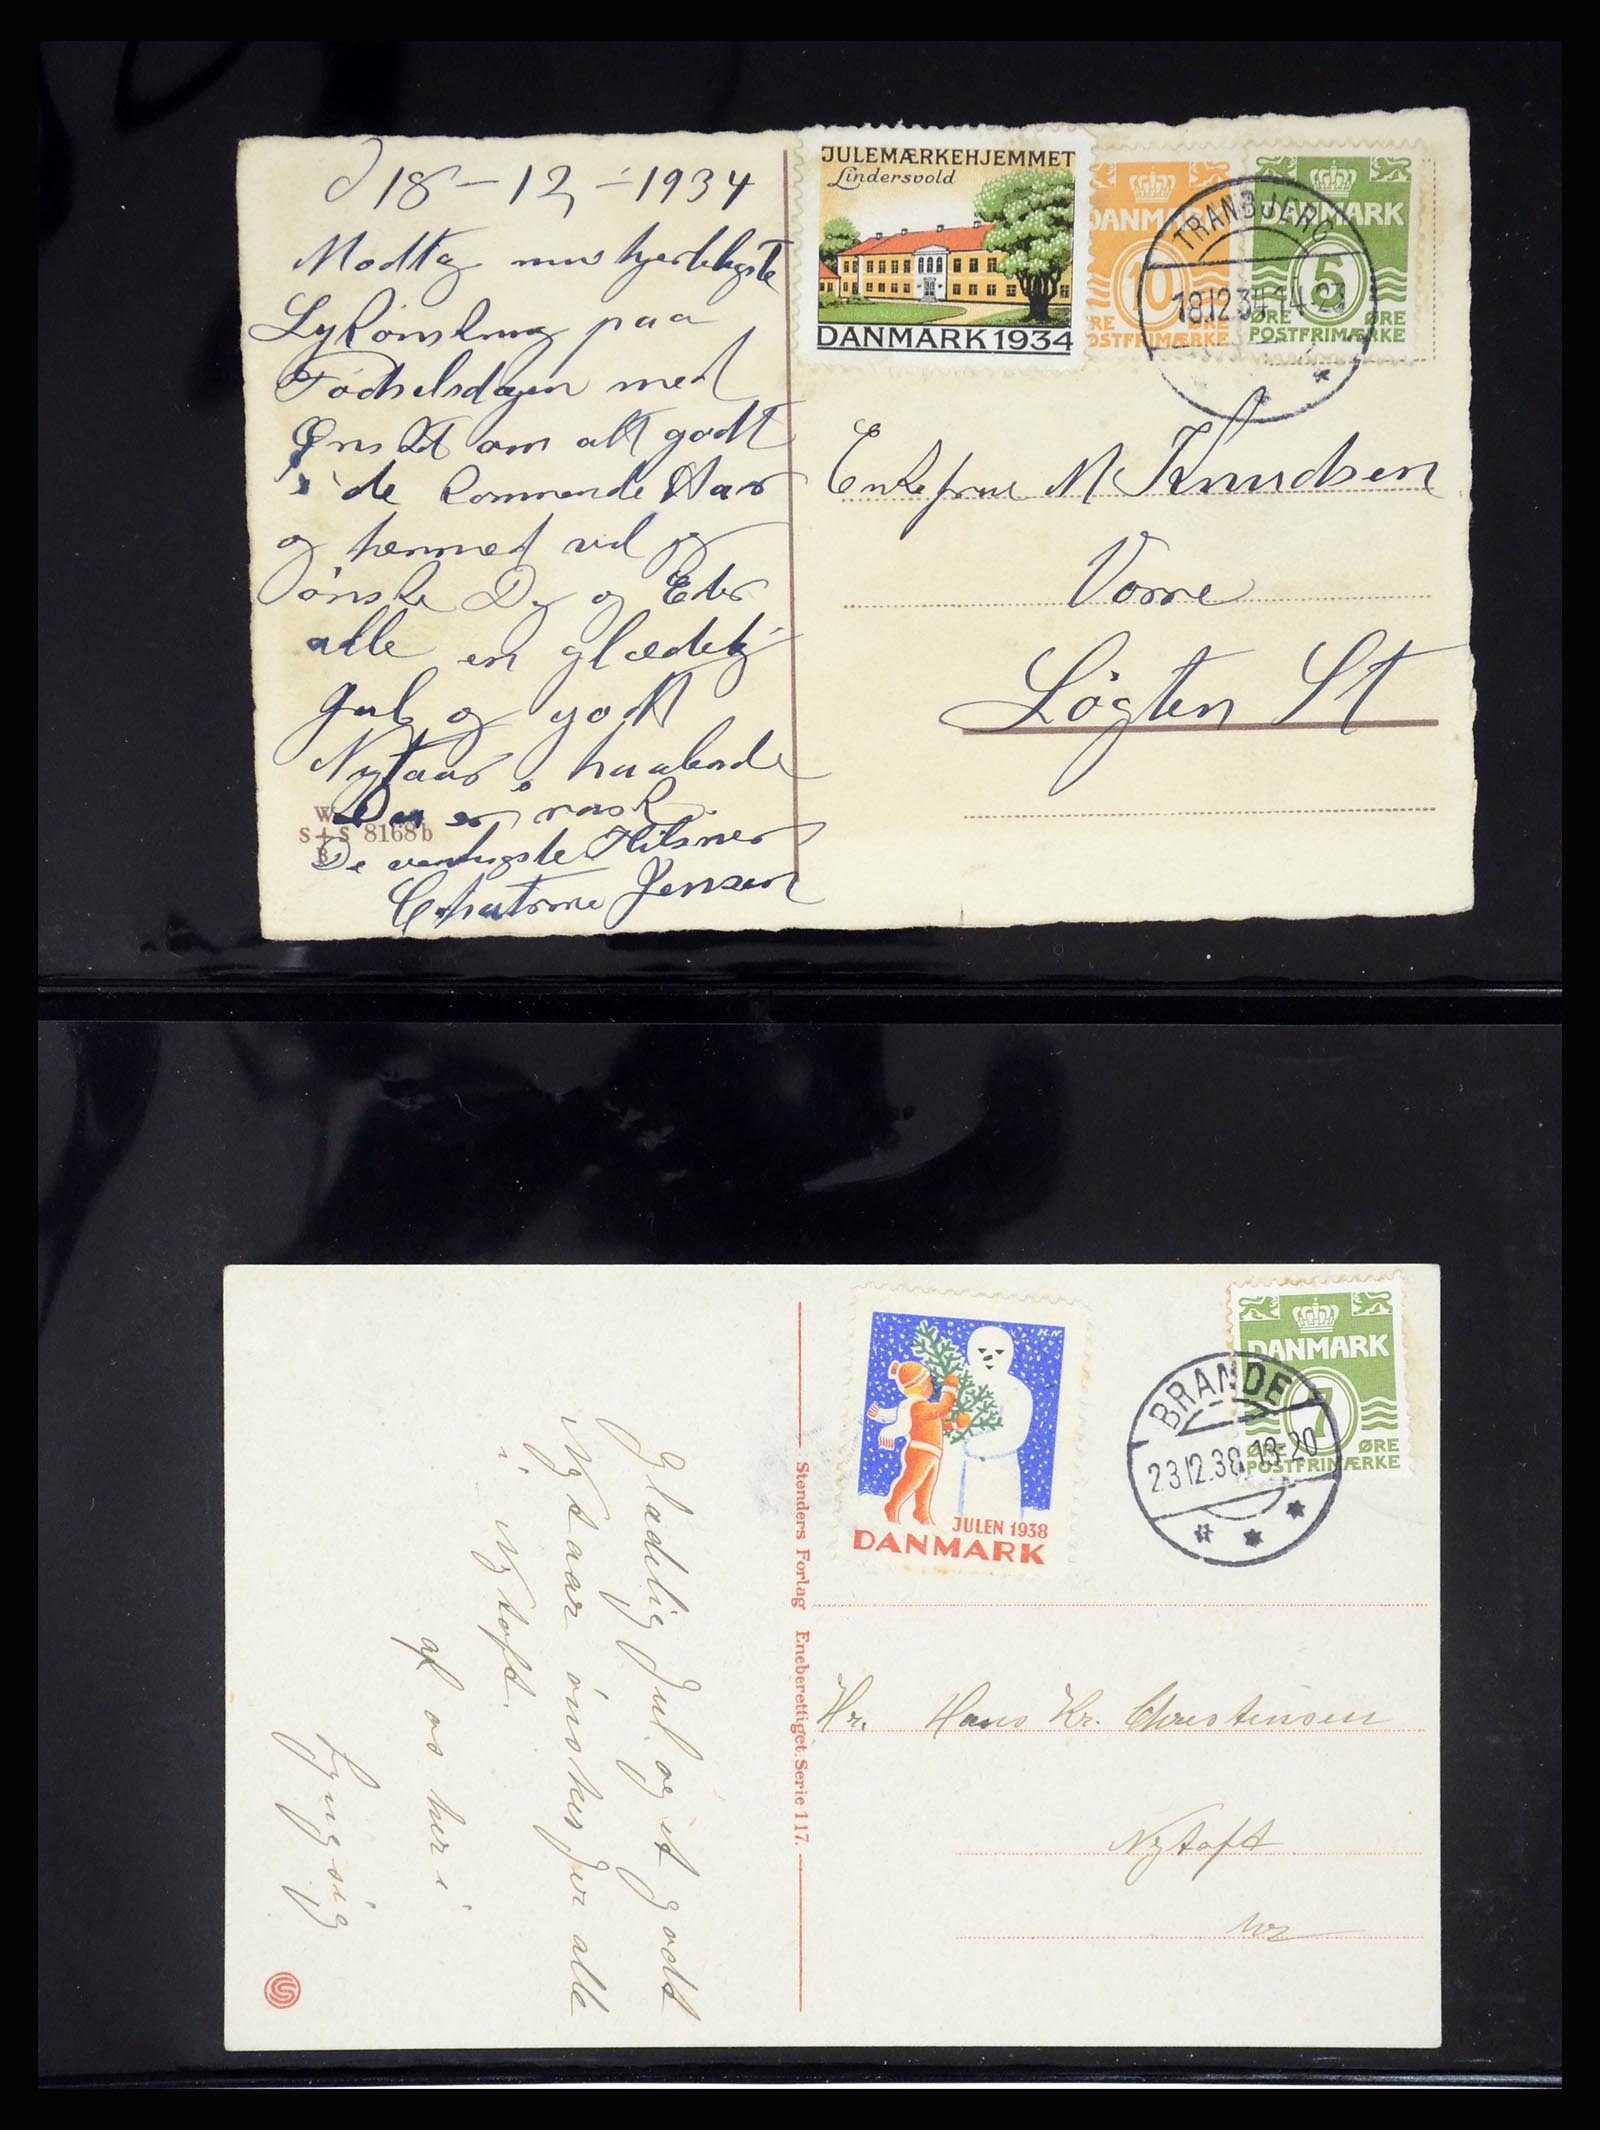 d 18-12-1934
Modtag min hjerteligste
Lykønskning paa
Fødselsdagen med
Ønsket om alt godt
i de kommende Aar
og hermed vil jeg
ønske Dig og Eder
alle en glædelig
Jul og godt
Nytaar, haabende
Du er rask.
De venligste Hilsner
Jensen
W
S+S 8168 b
B
JULEMÆRKEHJEMMET
Lindersvold
DANMARK 1934
DANMARK
10
ØRE
POSTFRIMÆRKE
DANMARK
5
ØRE ØRE
POSTFRIMÆRKE
TRANBJERG
18.12.34 14-
Enkefrue M Knudsen
Vorre
Løgten St
K.N
JULEN 1938
DANMARK
DANMARK
7
ØRE ØRE
POSTFRIMÆRKE
BRANDE
23.12.38. 18-20
Glædelig Jul og et godt
Nytaar ønskes Jer alle
i Nytoft.
af os her i
Lyngsig
Stenders Forlag Eneberettiget. Serie 117.
Hr. Hans Kr. Christensen
Nytoft
S